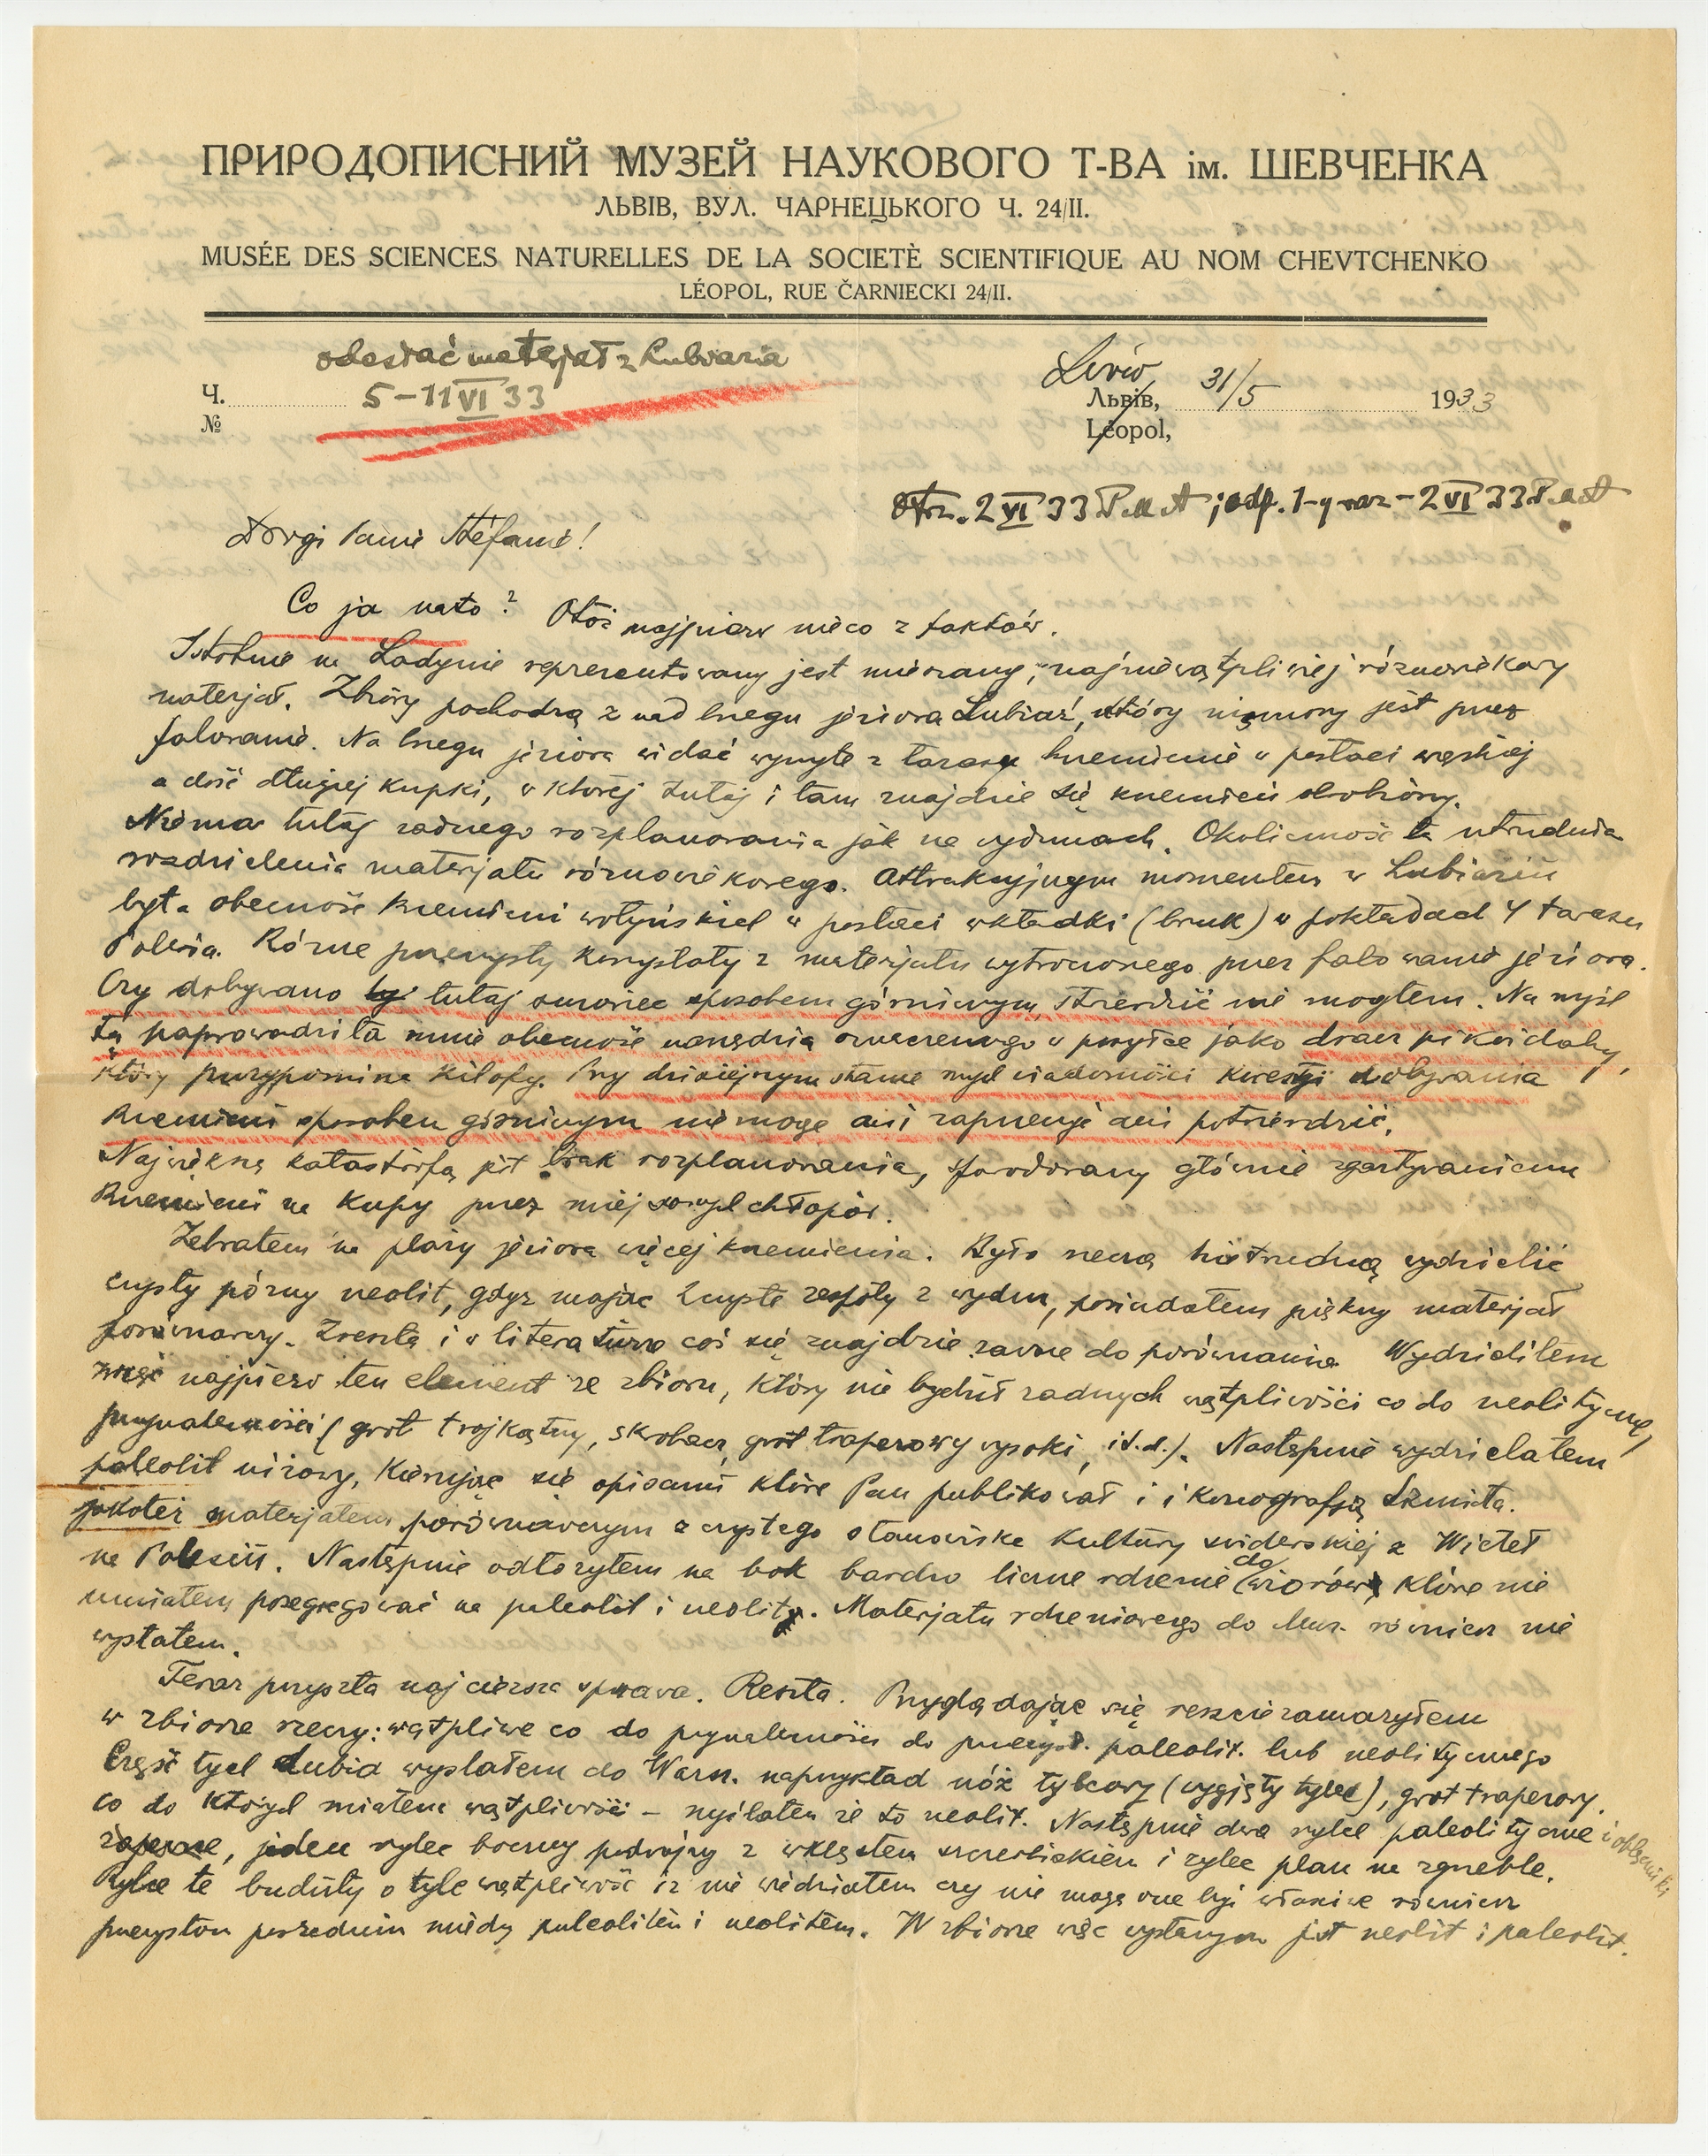 ПРИРОДОПИСНИЙ МУЗЕЙ НАУКОВОГО Т-ВА ім. ШЕВЧЕНКА
ЛЬВІВ, ВУЛ. ЧАРНЕЦЬКОГО Ч. 24/II.
MUSÉE DES SCIENCES NATURELLES DE LA SOCIETÈ SCIENTIFIQUE AU NOM CHEVTCHENKO
LÉOPOL, RUE ČARNIECKI 24/II.
odesłać materjał z Lubiazia
Ч. 5–11 VI 33
№
Lwów,
Львів, 31/5 1933
Léopol,
Otrz. 2 VI 33 ; odp. 1-y raz – 2 VI 33
Drogi Panie Stefanie!
Co ja na to? Otóż najpierw nieco z faktów.
Istotnie na Ladynie reprezentowany jest mieszany, najniewątpliwiej różnowiekowy
materjał. Zbiory pochodzą z nad brzegu jeziora Lubiaź, który niszczony jest przez
falowanie. Na brzegu jeziora widać wymyte z tarasy krzemienie w postaci wąskiej
a dość długiej kupki, w której tutaj i tam znajdzie się krzemień obrobiony.
Niema tutaj żadnego rozplanowania jak na wydmach. Okoliczność ta utrudnia
rozdzielenia materjału różnowiekowego. Atrakcyjnym momentem w Lubiaziu
była obecność krzemieni wołyńskich w postaci wkładki (bruk) w pokładach 4 tarasu
Polesia. Różne przemysły korzystały z materjału wytworzonego przez falowanie jeziora.
Czy dobywano tutaj surowiec sposobem górniczym, stwierdzić nie mogłem. Na myśl
tą naprowadziła mnie obecność narzędzia oznaczonego w przesyłce jako dracz pikoidalny,
który przypomina kilofy. Przy dzisiejszym stanie mych wiadomości kwestji dobywania
krzemieni sposobem górniczym nie mogę ani zaprzeczyć ani potwierdzić.
Największą katastrofą jest brak rozplanowania, spowodowany głównie zgartywaniem
krzemieni na kupy przez miejscowych chłopów.
Zebrałem na plaży jeziora więcej krzemienia. Było rzeczą nietrudną wydzielić
czysty późny neolit, gdyż mając czyste zespoły z wydm, posiadałem piękny materjał
porównawczy. Zresztą i w literaturze coś się znajdzie zawsze do porównania. Wydzieliłem
więc najpierw ten element ze zbioru, który nie budził żadnych wątpliwości co do neolitycznej
przynależności (grot trójkątny, skrobacz, grot trapezowy wysoki, i t. d.). Następnie wydzielałem
paleolit wiórowy, kierując się opisami które Pan publikował i ikonografją Szmita.
jakoteż materjałem porównawczym z czystego stanowiska kultury swiderskiej z Wideł
na Polesiu. Następnie odłożyłem na bok bardzo liczne rdzenie do wiórów które nie
umiałem posegregować na paleolit i neolit. Materjału rdzeniowego do Muz. również nie
wysłałem.
Teraz przyszła najcięższa sprawa. Reszta. Przyglądając się reszcie zauważyłem
w zbiorze rzeczy: wątpliwe co do przynależności do przemysł. paleolit. lub neolitycznego
Część tych dubia wysłałem do Warsz. naprzykład nóż tylcowy (wygięty tylec), grot trapezowy.
co do których miałem wątpliwości – myślałem że to neolit. Następnie dwa rylce paleolityczne i obłęczniki
zapewne, jeden rylec boczny podwójny z wklęsłem szczerbiskiem i rylec plan na zgrzeble.
Rylce te budziły o tyle wątpliwość iż nie wiedziałem czy nie mogą one być właściwe również
przemysłom pośrednim miedzy paleolitem i neolitem. W zbiorze więc wysłanym jest neolit i paleolit.